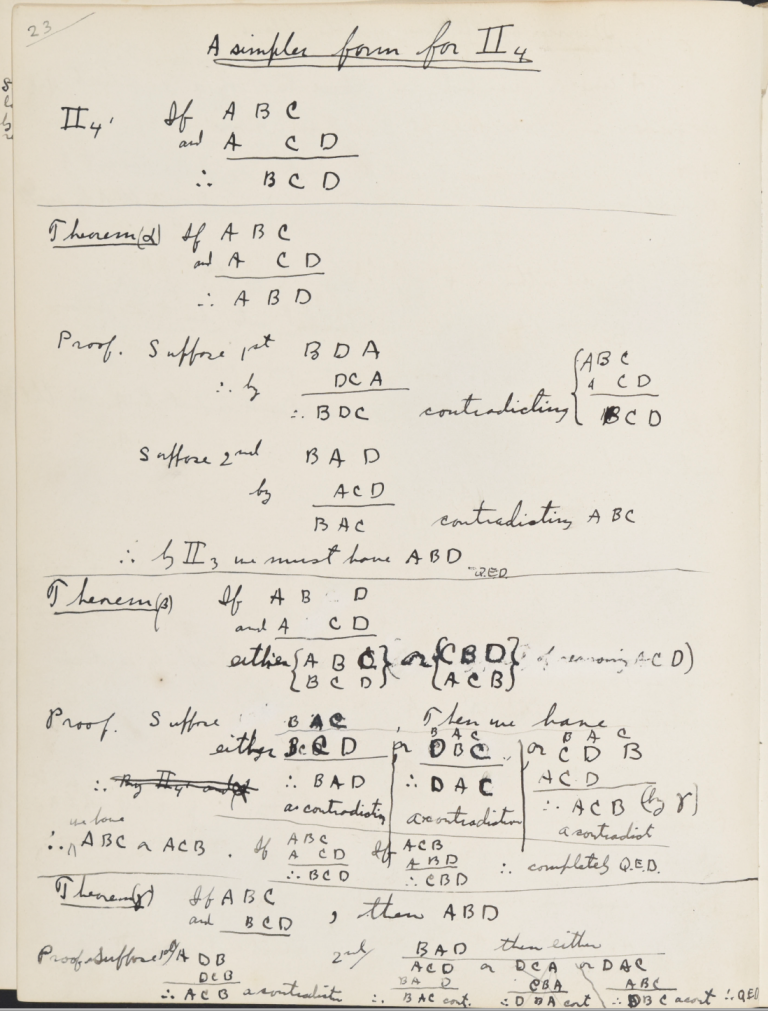 23
A simpler form for II4
II4' If A B C
and A C D
∴ B C D
Theorem (α) If A B C
and A C D
∴ A B D
Proof. Suppose 1st B D A
∴ by DCA
∴ BDC contradicting { ABC
A CD
BCD
Suppose 2nd B A D
by ACD
BAC contradicting ABC
∴ by II3 we must have ABD QED
Theorem (β) If A B D
and A C D
either {A B C} or {C B D} of reasoning ACD)
{B C D} {A C B}
Proof. Suppose BAC, Then we have
either BCD or DBC or BAC CDB
∴ ∴ BAD ∴ DAC ACD
a contradiction a contradiction ∴ ACB (by γ)
a contradict
∴ we have ABC or ACB. If ABC If ACB
A CD ABD ∴ completely Q.E.D.
∴ BCD ∴ CBD
Theorem (γ) If ABC
and BCD, then ABD
Proof Suppose 1st A DB 2nd BAD then either
DCB ACD or DCA or DAC
∴ ACB a contradict ∴ BAC cont. CBA ∴ DBA cont ABC ∴ DBC a cont ∴ QED